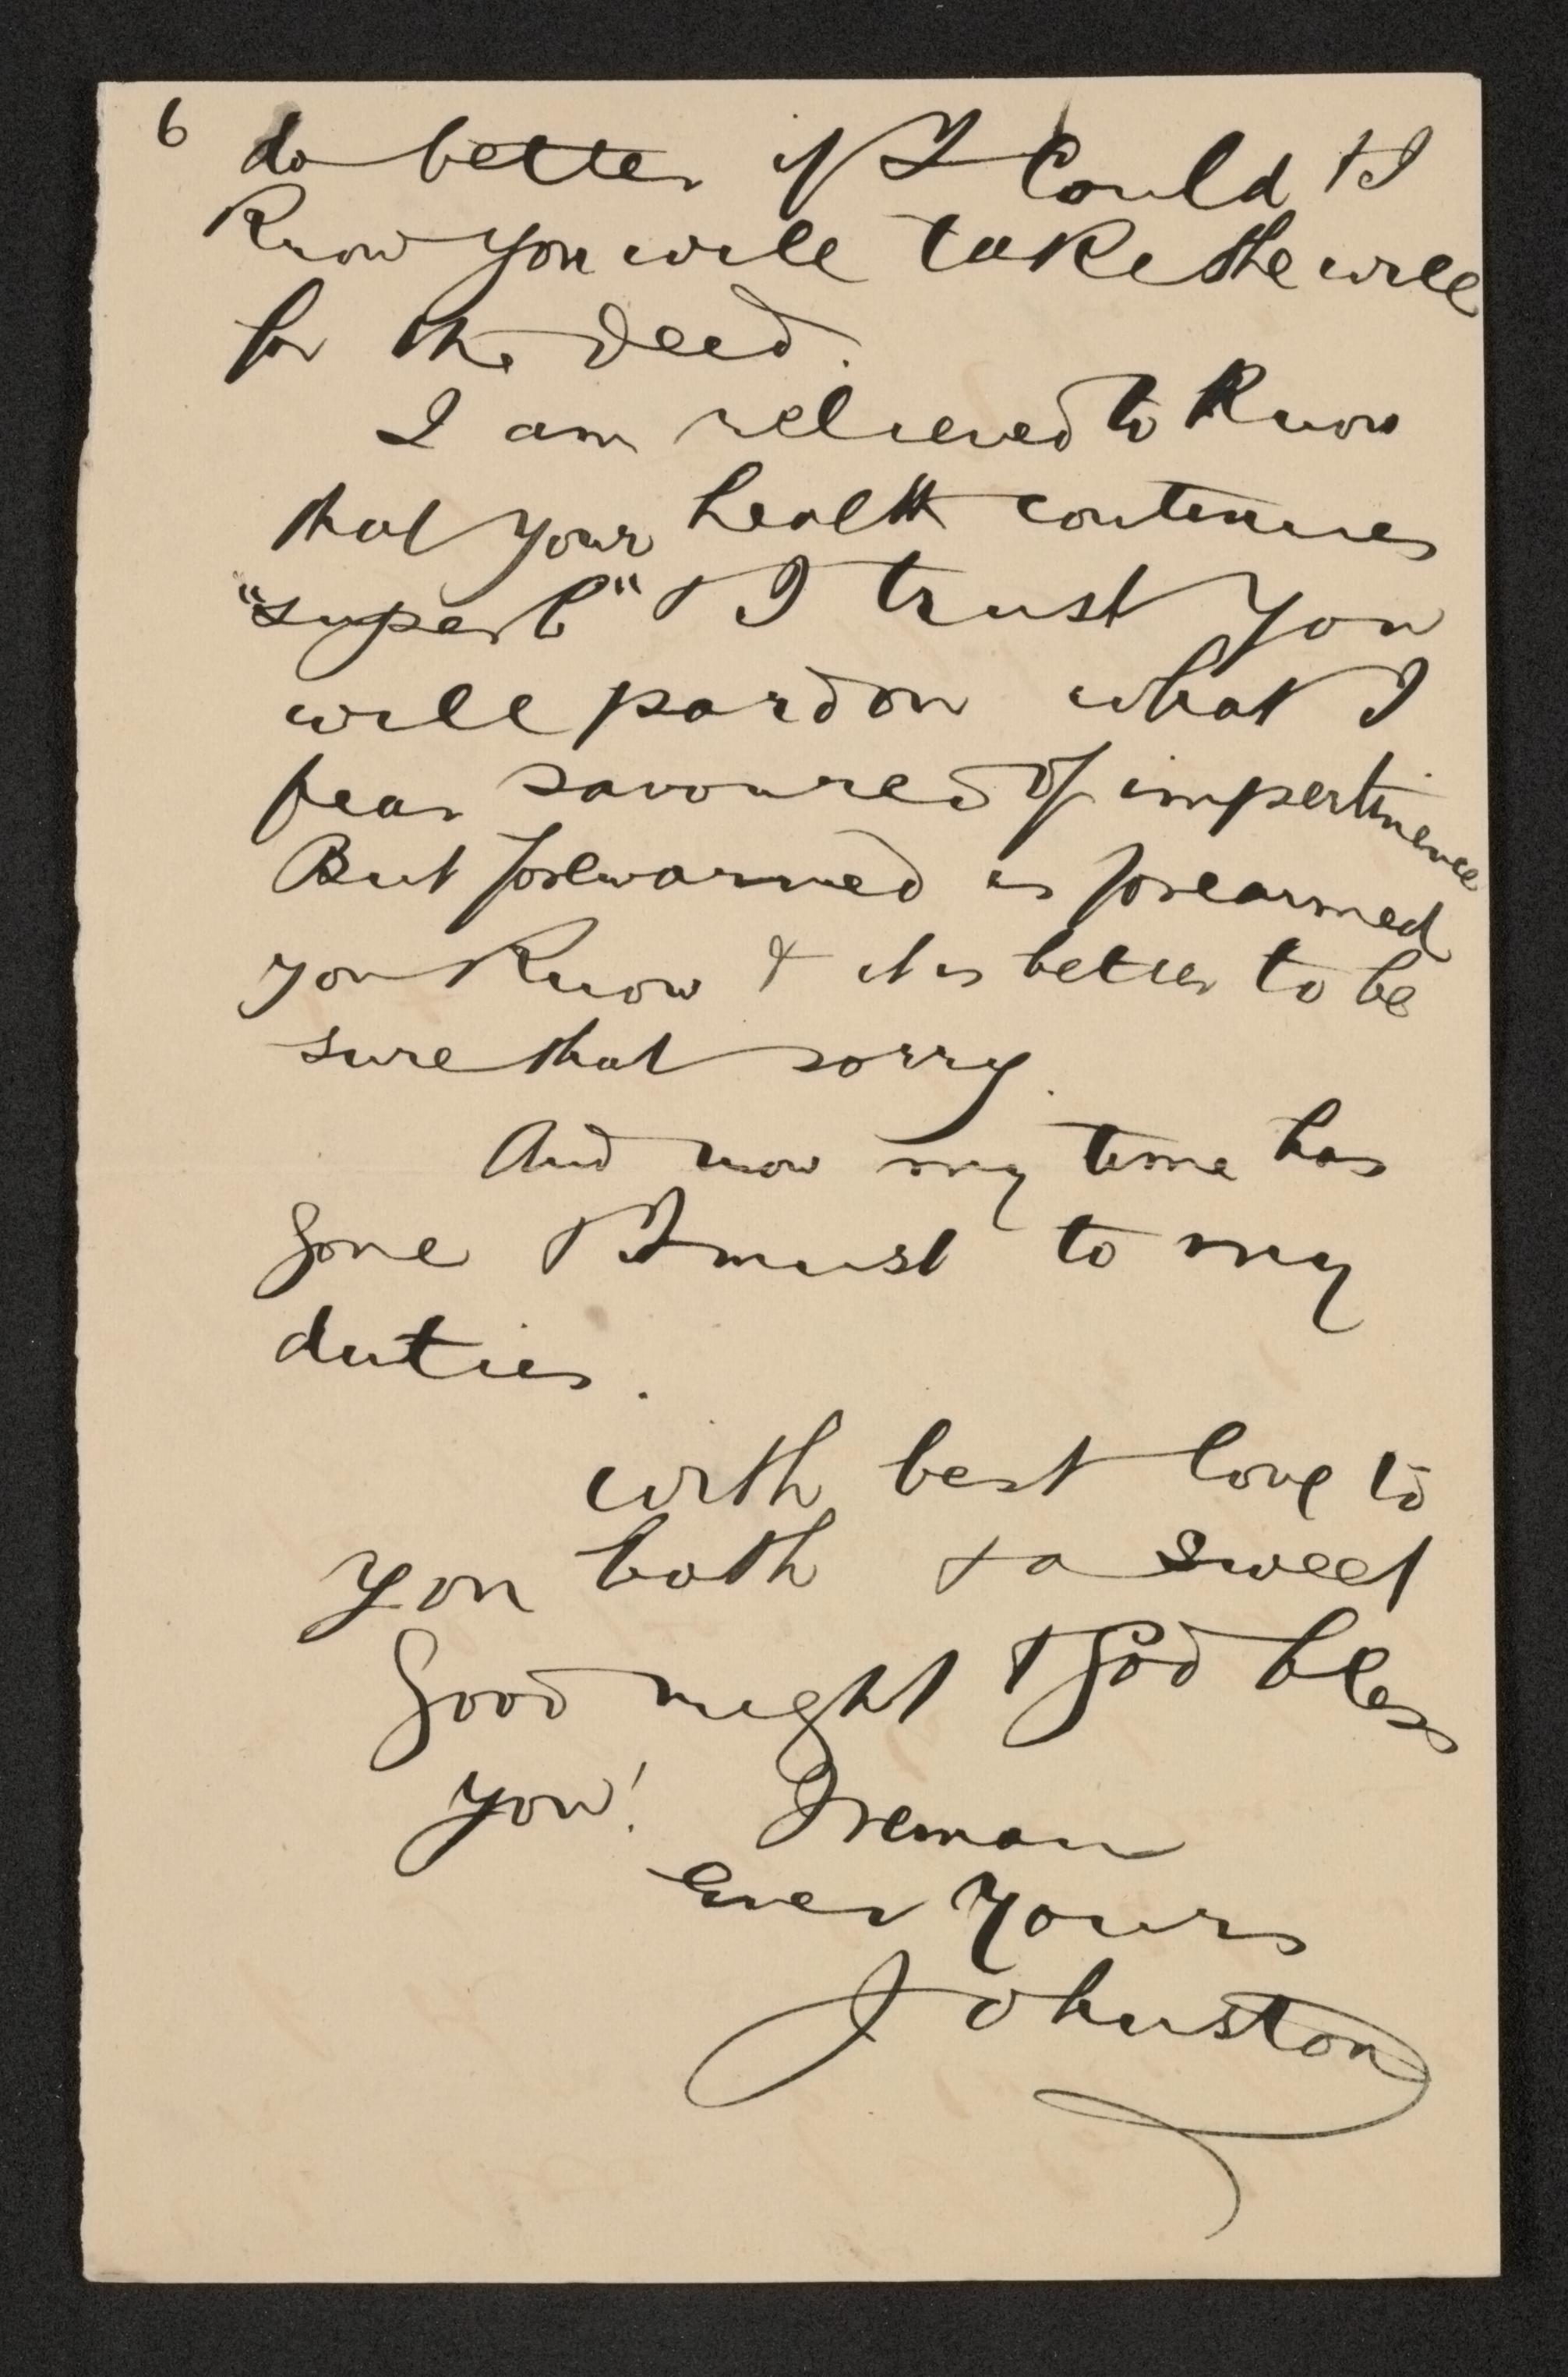 6 do better if I could & I
know you will take the will
for the deed.
I am relieved to know
that your health continues
"superb" & I trust you
will pardon what I
fear savoured of impertinence
But forewarned is forearmed
you know & it is better to be
sure that sorry.
And now my time has
gone & I must to my
duties.
with best love to
you both & a sweet
good night & God bless
you! I remain
Ever yours
Johnston